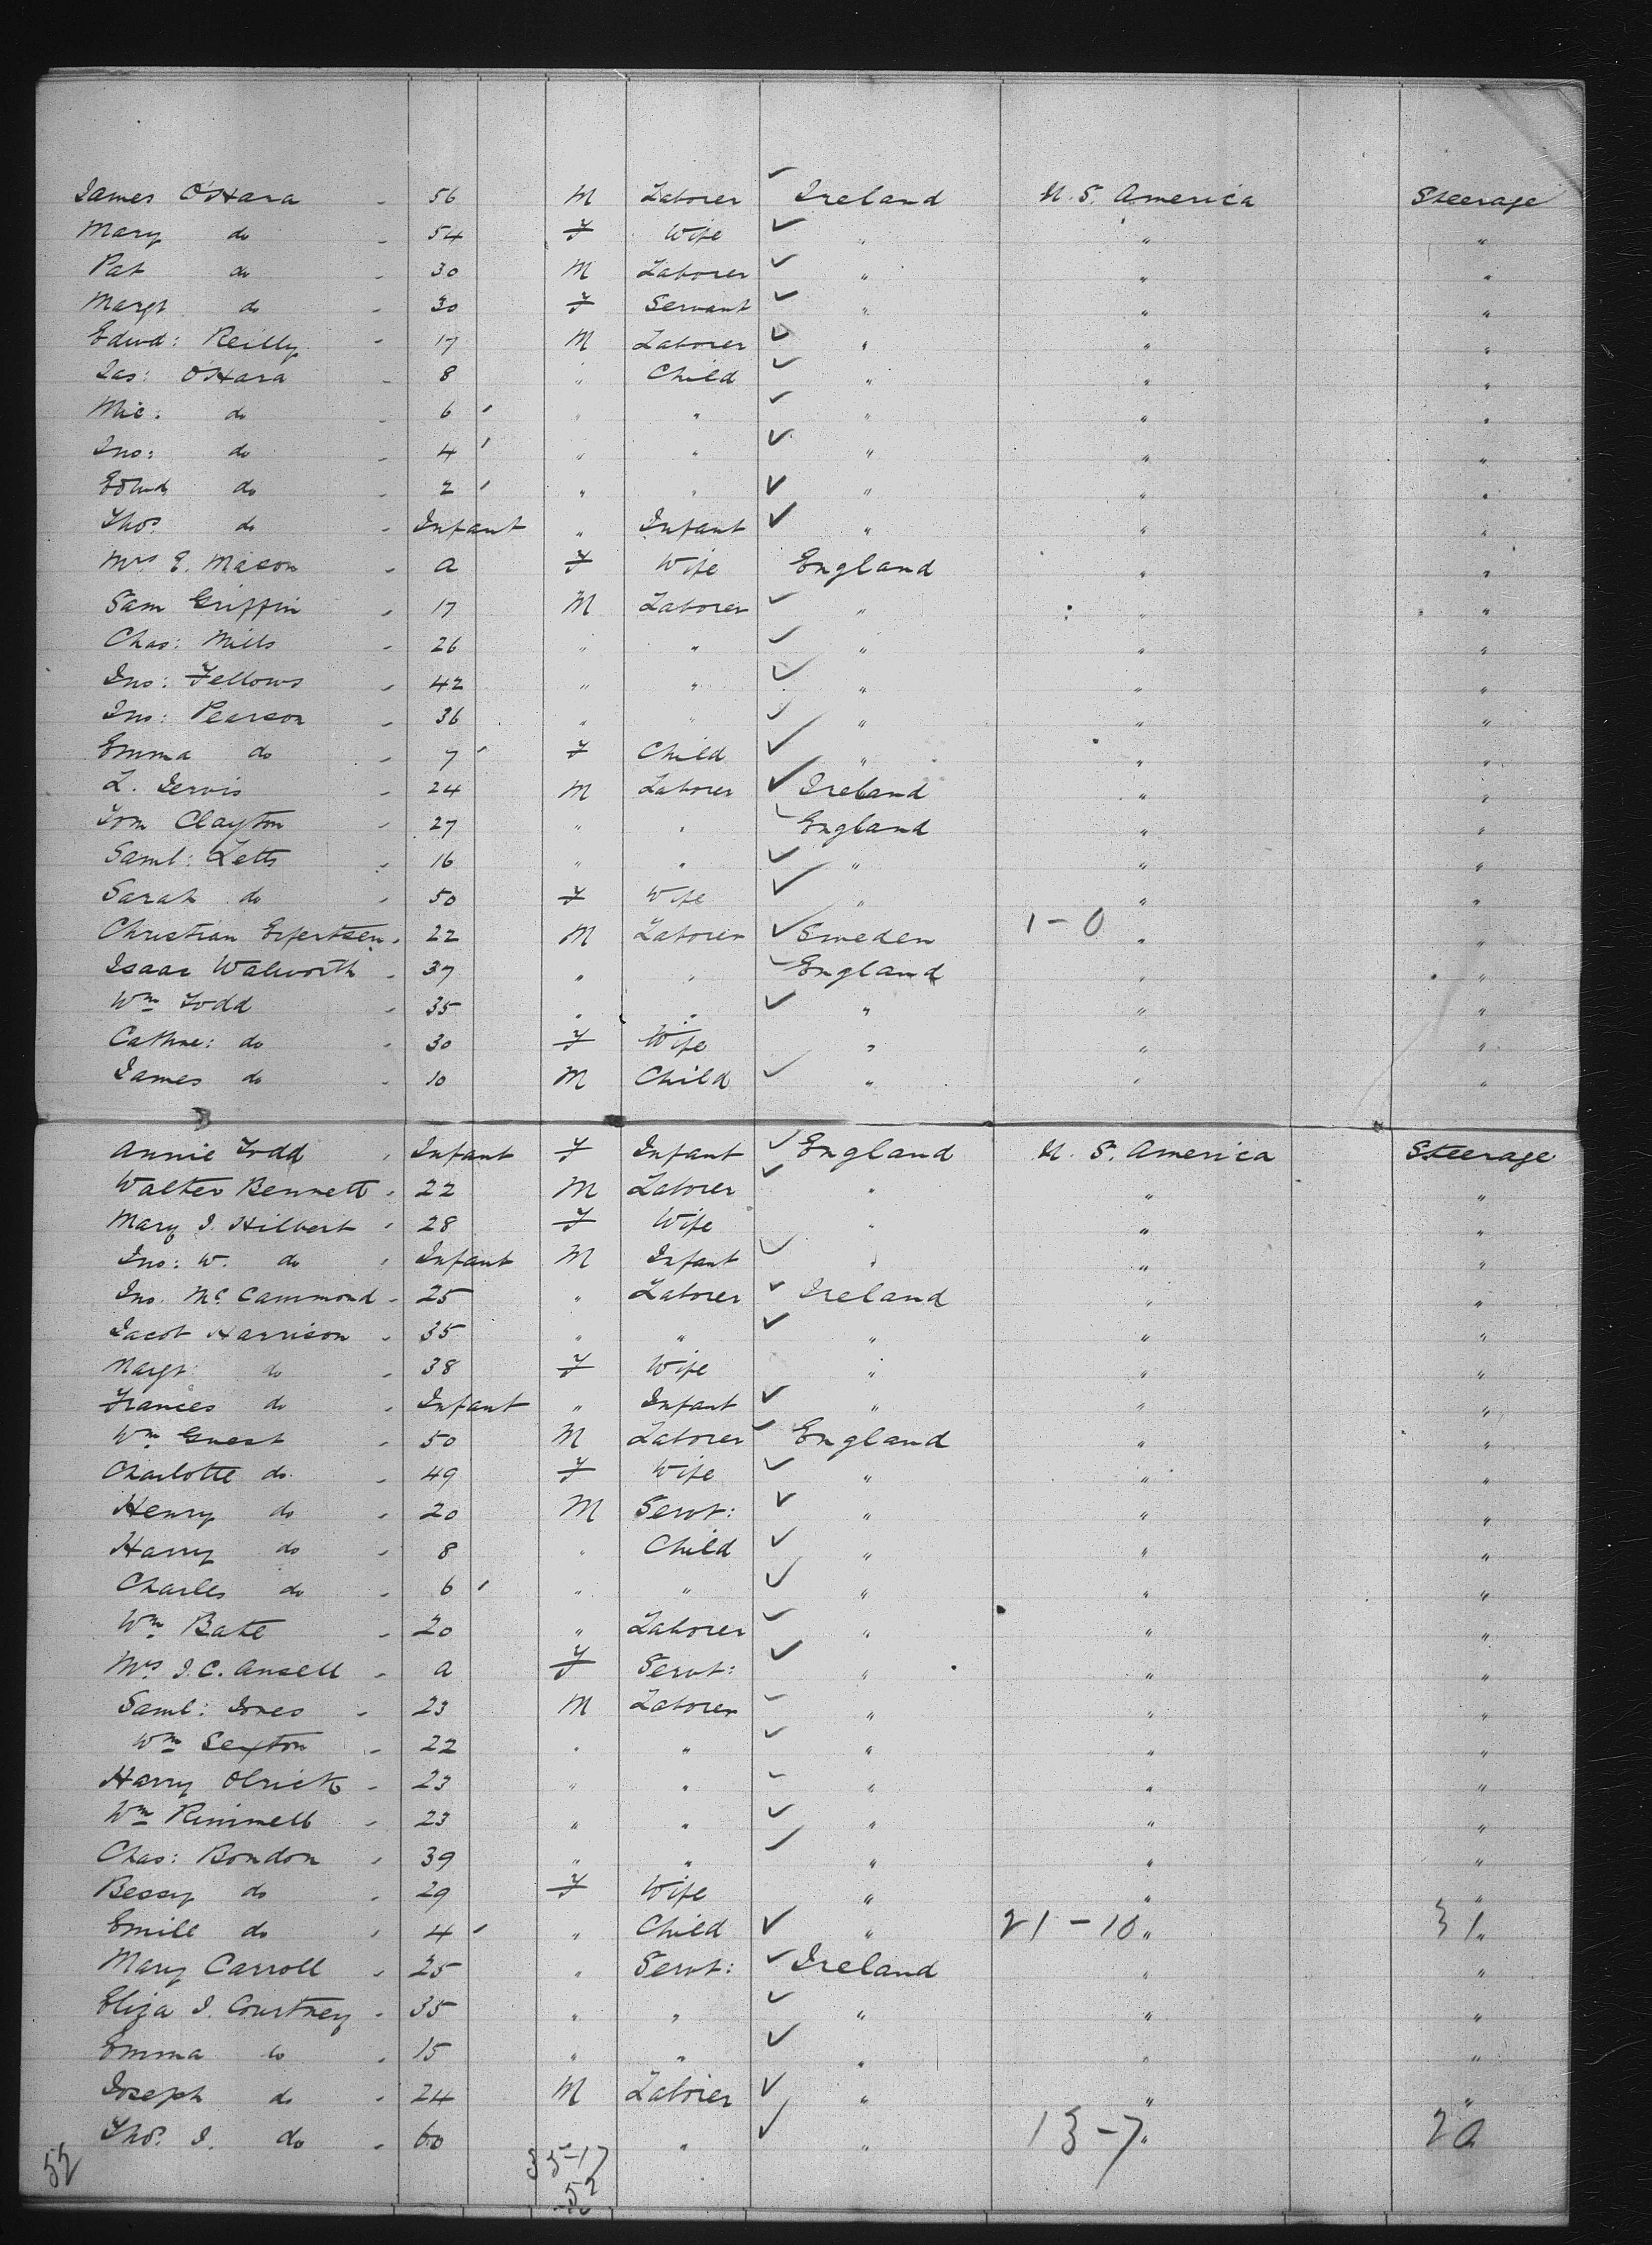 James O'Hara - 56 M Laborer ✓ Ireland U.S. America Steerage
Mary do - 54 F Wife ✓ " " "
Pat do - 30 M Laborer ✓ " " "
Margt do - 30 F Servant ✓ " " "
Edwd: Reilly - 17 M Laborer ✓ " " "
Jas: O'Hara - 8 " Child ✓ " " "
Mic: do - 6 ' " " ✓ " " "
Jno: do - 4 ' " " ✓ " " "
Edwd do - 2 ' " " ✓ " " "
Thos do - Infant " Infant ✓ " " "
Mrs E. Mason - a F Wife England " "
Sam Griffin - 17 M Laborer ✓ " " "
Chas: Mills - 26 " " ✓ " " "
Jno: Fellows - 42 " " ✓ " " "
Jno: Pearson - 36 " " ✓ " " "
Emma do - 7 ' F Child ✓ " " "
L. Jervis - 24 M Laborer ✓ Ireland " "
Tom Clayton - 27 " " ✓ England " "
Saml: Letts - 16 " " ✓ " " "
Sarah do - 50 F Wife ✓ " " "
Christian - 22 M Laborer ✓ Sweden 1-0 " "
Isaac Walworth - 37 " " ✓ England " "
Wm Todd - 35 " " ✓ " " "
Cathne: do - 30 F Wife " " "
James do - 10 M Child ✓ " " "
Annie Todd - Infant F Infant ✓ England U.S. America Steerage
Walter Bennett - 22 M Laborer ✓ " " "
Mary J. Hilbert - 28 F Wife " " "
Jno: W. do - Infant M Infant ✓ " " "
Jno. McCammond - 25 " Laborer ✓ Ireland " "
Jacob Harrison - 35 " " ✓ " " "
Margt: do - 38 F Wife " " "
Frances do - Infant " Infant ✓ " " "
Wm Guest - 50 M Laborer ✓ England " "
Charlotte do - 49 F Wife ✓ " " "
Henry do - 20 M Servt: ✓ " " "
Harry do - 8 " Child ✓ " " "
Charles do - 6 ' " " ✓ " " "
Wm Bate - 20 " Laborer ✓ " " "
Mrs J.C. Ansell - a F Servt: ✓ " " "
Saml: Jones - 23 M Laborer ✓ " " "
Wm Sexton - 22 " " ✓ " " "
Harry - 23 " " ✓ " " "
Wm Rimmell - 23 " " ✓ " " "
Chas: Bondon - 39 " " ✓ " " "
Bessy do - 29 F Wife " " "
Emill do - 4 ' " Child ✓ " 21-10 " 31 "
Mary Carroll - 25 " Servt: ✓ Ireland " "
Eliza J. Courtney - 35 " " ✓ " " "
Emma do - 15 " " ✓ " " "
Joseph do - 24 M Laborer ✓ " " "
Thos. J. do - 60 " ✓ " 13-7 " 20
52 35-17
52